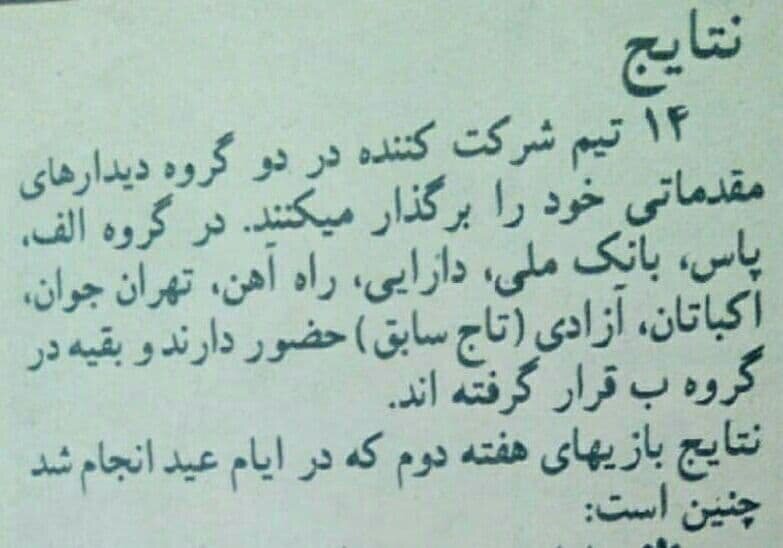 نتایج
۱۴ تیم شرکت کننده در دو گروه دیدارهای
مقدماتی خود را برگذار میکنند. در گروه الف،
پاس، بانک ملی، دارایی، راه آهن، تهران جوان،
اکباتان، آزادی (تاج سابق) حضور دارند و بقیه در
گروه ب قرار گرفته اند.
نتایج بازیهای هفته دوم که در ایام عید انجام شد
چنین است: